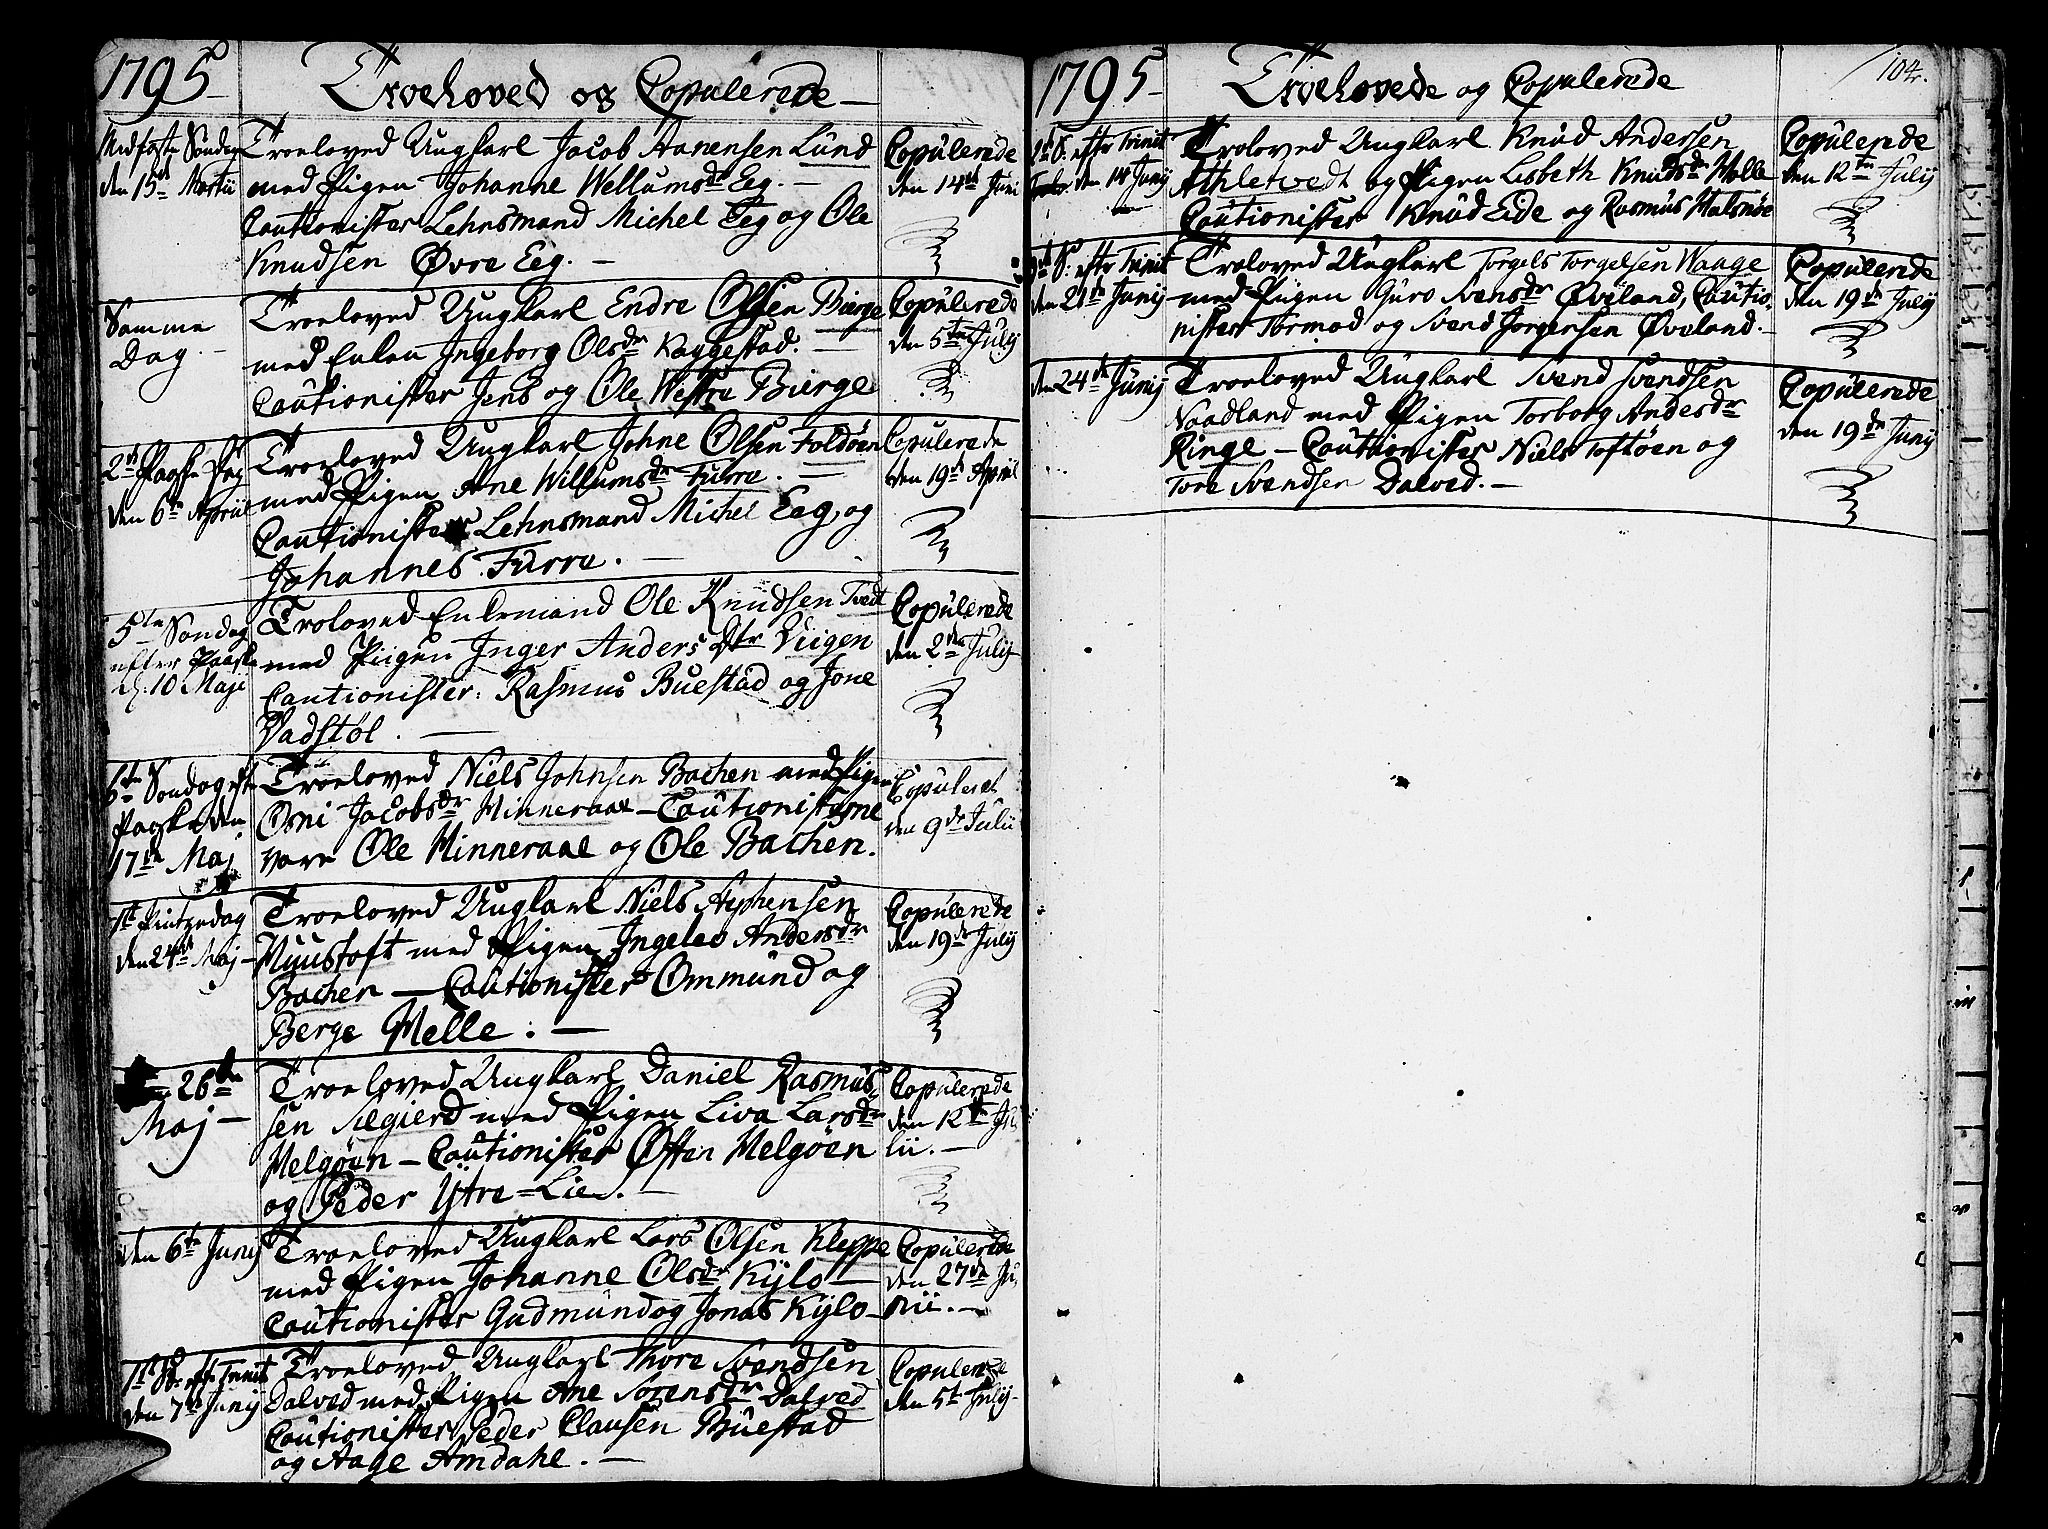 1795
Troeloved og Copulerede
Midfaste Søndag
den 15de Martii
Troeloved Ungkarl Jacob Aanensen Lund
med Pigen Johanne Wellumsdr Eeg. –
Cautionister Lehnsmand Michel Eeg og Ole
Knudsen Øvre Eeg. –
Copulerede
den 14de Juni
Samme
Dag. –
Troeloved Ungkarl Endre Olsen Bierge
med Enken Ingeborg Olsdr Kaggestad. –
Cautionister Jens og Ole Westre Bierge
Copulerede
den 5te July
2den Paaske Dag
den 6te Apriil
Troeloved Ungkarl Johne Olsen Foldøen
med Pigen Ane Willumsdr Furre. –
Cautionister Lehnsmand Michel Eeg, og
Johannes Furre. –
Copulerede
den 19de April
5te Søndag
efter Paaske
d. 10 Maji
Troloved Enkemand Ole Knudsen Tvedt
med Piigen Inger Anders Dtr Viigen
Cautionister: Rasmus Buestad og Jone
Vadstøl. –
Copulerede
den 2den Julij
6te Søndag eft
Paaske den
17de Maj
Troeloved Niels Johnsen Bachen med Pigen
Osni Jacobsdr Hinneraae – Cautionisterne
vare Ole Hinneraae og Ole Bachen.
Copuleret
den 9de Julii
1ste Pintzedag
den 24de Maj –
Troeloved Ungkarl Niels Stephensen
Muustoft med Pigen Ingeleo Andersdr
Bachen – Cautionister Ommund og
Berge Melle. –
Copulerede
den 19de July
26de
Maj –
Troeloved Ungkarl Daniel Rasmus
sen Nægierd med Pigen Liva Larsdr
Helgøen – Cautionister Østen Helgøen
og Peder Ytre-Lie. –
Copulerede
den 12te Ju
lii. –
den 6te Junij
Troeloved Ungkarl Lars Olsen Kleppe
med Pigen Johanne Olsdr Kylo –
Cautionister Gudmund og Jonas Kylo –
Copulerede
den 27de Ju
nii. –
1ste S. eft Trinit
den 7de Junij
Troeloved Ungkarl Thore Svendsen
Dalved med Pigen Ane Sørensdr Dalved
Cautionister Peder Clausen Buestad
og Aage Amdahl. –
Copulerede
den 5te July –
1795
Troelovede og Copulerede
104.
2de S. efter Trinit
den 14 Junij
Troloved Ungkarl Knud Andersen
Athletvedt og Pigen Lisbeth Knudsdr Molle
Cautionister Knud Eide og Rasmus Halsnøe
Copulerede
den 12te July
3de S. efter Trinit
den 21de Junij
Troloved Ungkarl Torgels Torgelsen Waage
med Pigen Guro Svensdr Øveland, Cautio-
nister Tormod og Svend Jørgensen Øveland. –
Copulerede
den 19de July
den 24de Junij
Troeloved Ungkarl Svend Svendsen
Naadland med Pigen Torborg Andersdr
Ringe – Cautionister Niels Toftøen og
Tore Svendsen Dalved. –
Copulerede
den 19de Junij